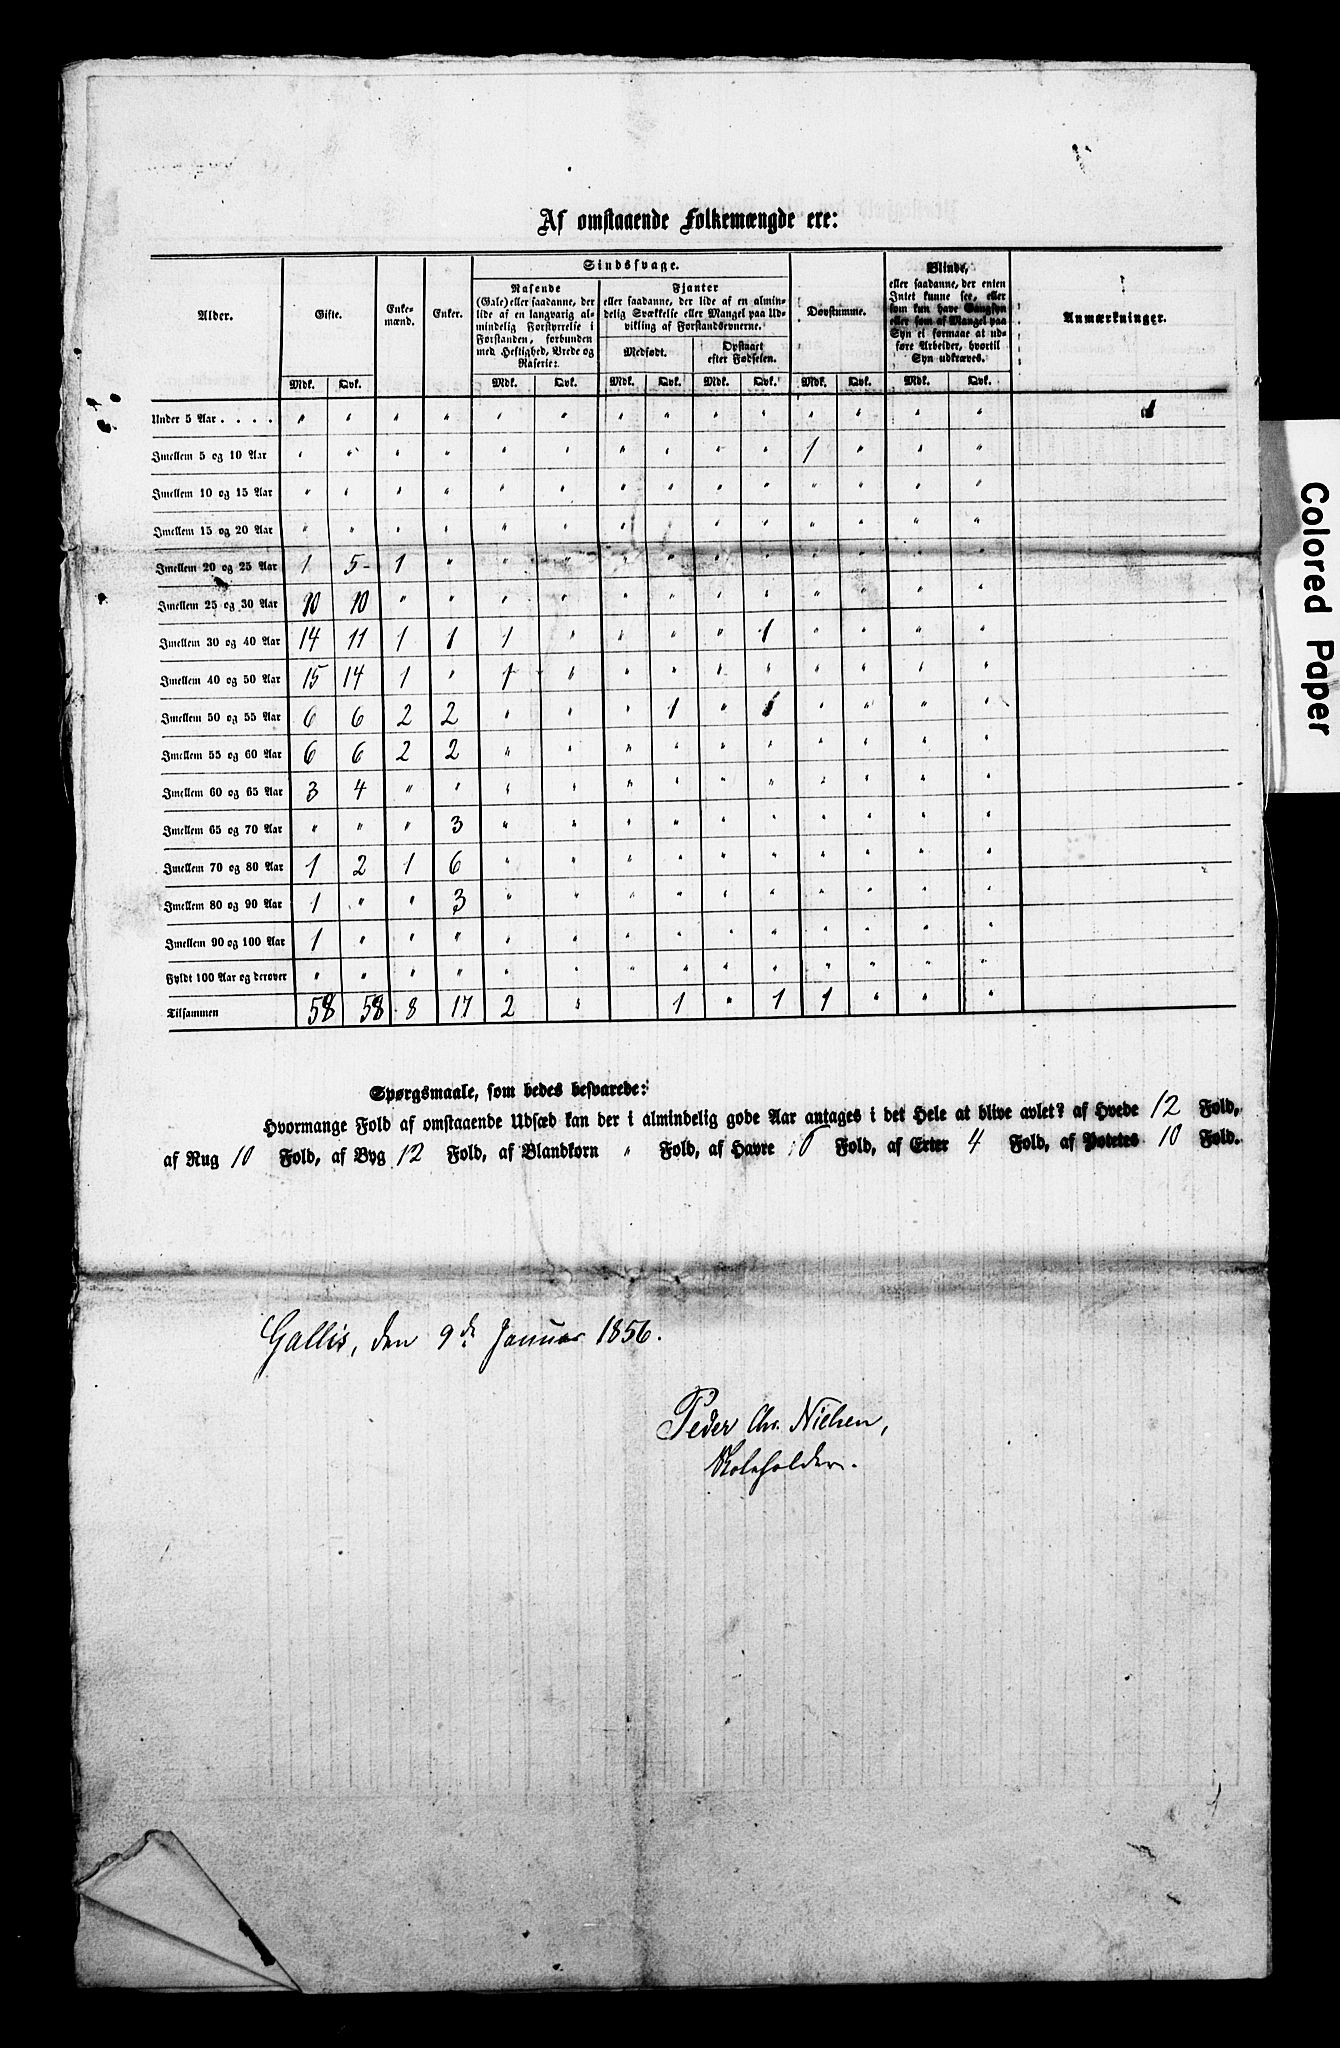 Af omstaaende Folkemængde ere:
Alder. Gifte. Enke-mænd. Enker. Sindssvage. Døvstumme. Blinde, Anmærkninger.
Rasende
(Gale) eller saadanne, der
lide af en langvarig al-
mindelig Forstyrrelse i
Forstanden, forbunden
med Heftighed, Vrede og
Raserie:
Fjanter
eller saadanne, der lide af en almin-
delig Svækkelse eller Mangel paa Ud-
vikling af Forstandsevnerne.
Medfødt. Opstaaet
efter Fødselen.
eller saadanne, der enten
Intet kunne see, eller
som kun have Gangsyn
eller som af Mangel paa
Syn ei formaae at ud-
føre Arbeider, hvortil
Syn udkræves.
Mdk. Qvk. Mdk. Qvk. Mdk. Qvk. Mdk. Qvk. Mdk. Qvk. Mdk. Qvk.
Under 5 Aar . . . . " " " " " " " " " " " " " "
Imellem 5 og 10 Aar " " " " " " " " " " 1 " " "
Imellem 10 og 15 Aar " " " " " " " " " " " " " "
Imellem 15 og 20 Aar " " " " " " " " " " " " " "
Imellem 20 og 25 Aar 1 5 1 " " " " " " " " " " "
Imellem 25 og 30 Aar 10 10 " " " " " " " " " " " "
Imellem 30 og 40 Aar 14 11 1 1 1 " " " " 1 " " " "
Imellem 40 og 50 Aar 15 14 1 " 1 " " " " " " " " "
Imellem 50 og 55 Aar 6 6 2 2 " " " 1 " 1 " " " "
Imellem 55 og 60 Aar 6 6 2 2 " " " " " " " " " "
Imellem 60 og 65 Aar 3 4 " " " " " " " " " " " "
Imellem 65 og 70 Aar " " " 3 " " " " " " " " " "
Imellem 70 og 80 Aar 1 2 1 6 " " " " " " " " " "
Imellem 80 og 90 Aar 1 " " 3 " " " " " " " " " "
Imellem 90 og 100 Aar 1 " " " " " " " " " " " " "
Fyldt 100 Aar og derover " " " " " " " " " " " " " "
Tilsammen 58 58 8 17 2 " 1 " 1 1 " " "
Spørgsmaale, som bedes besvarede:
Hvormange Fold af omstaaende Udsæd kan der i almindelig gode Aar antages i det Hele at blive avlet? af Hvede 12 Fold,
af Rug 10 Fold, af Byg 12 Fold, af Blandkorn " Fold, af Havre Fold, af Erter 4 Fold, af Potetes 10 Fold.
Gallis, den 9de Januar 1856.
Peder Chr. Nielsen,
Skoleholder.
Colored Paper